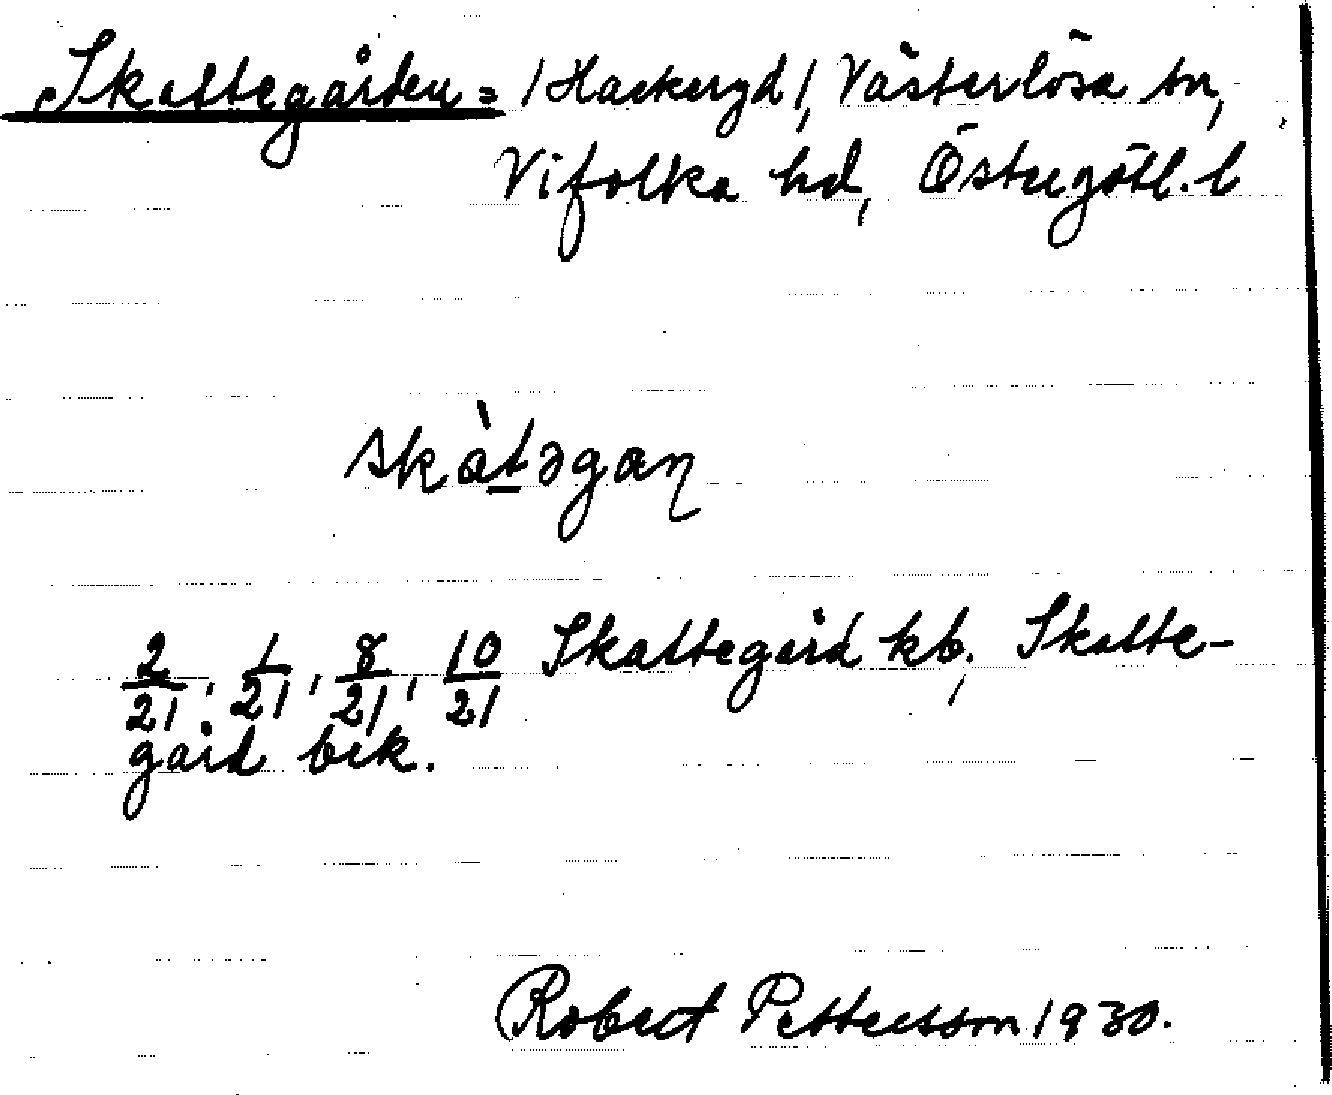 Skattegården = /Hackeryd/, Västerlösa sn,
Vifolka hd, Östergötl. l
skàtəgaɳ
2/21, 1/21, 8/21, 10/21 Skattegård kb, Skatte-
gård bek.
Robert Pettersson 1930.